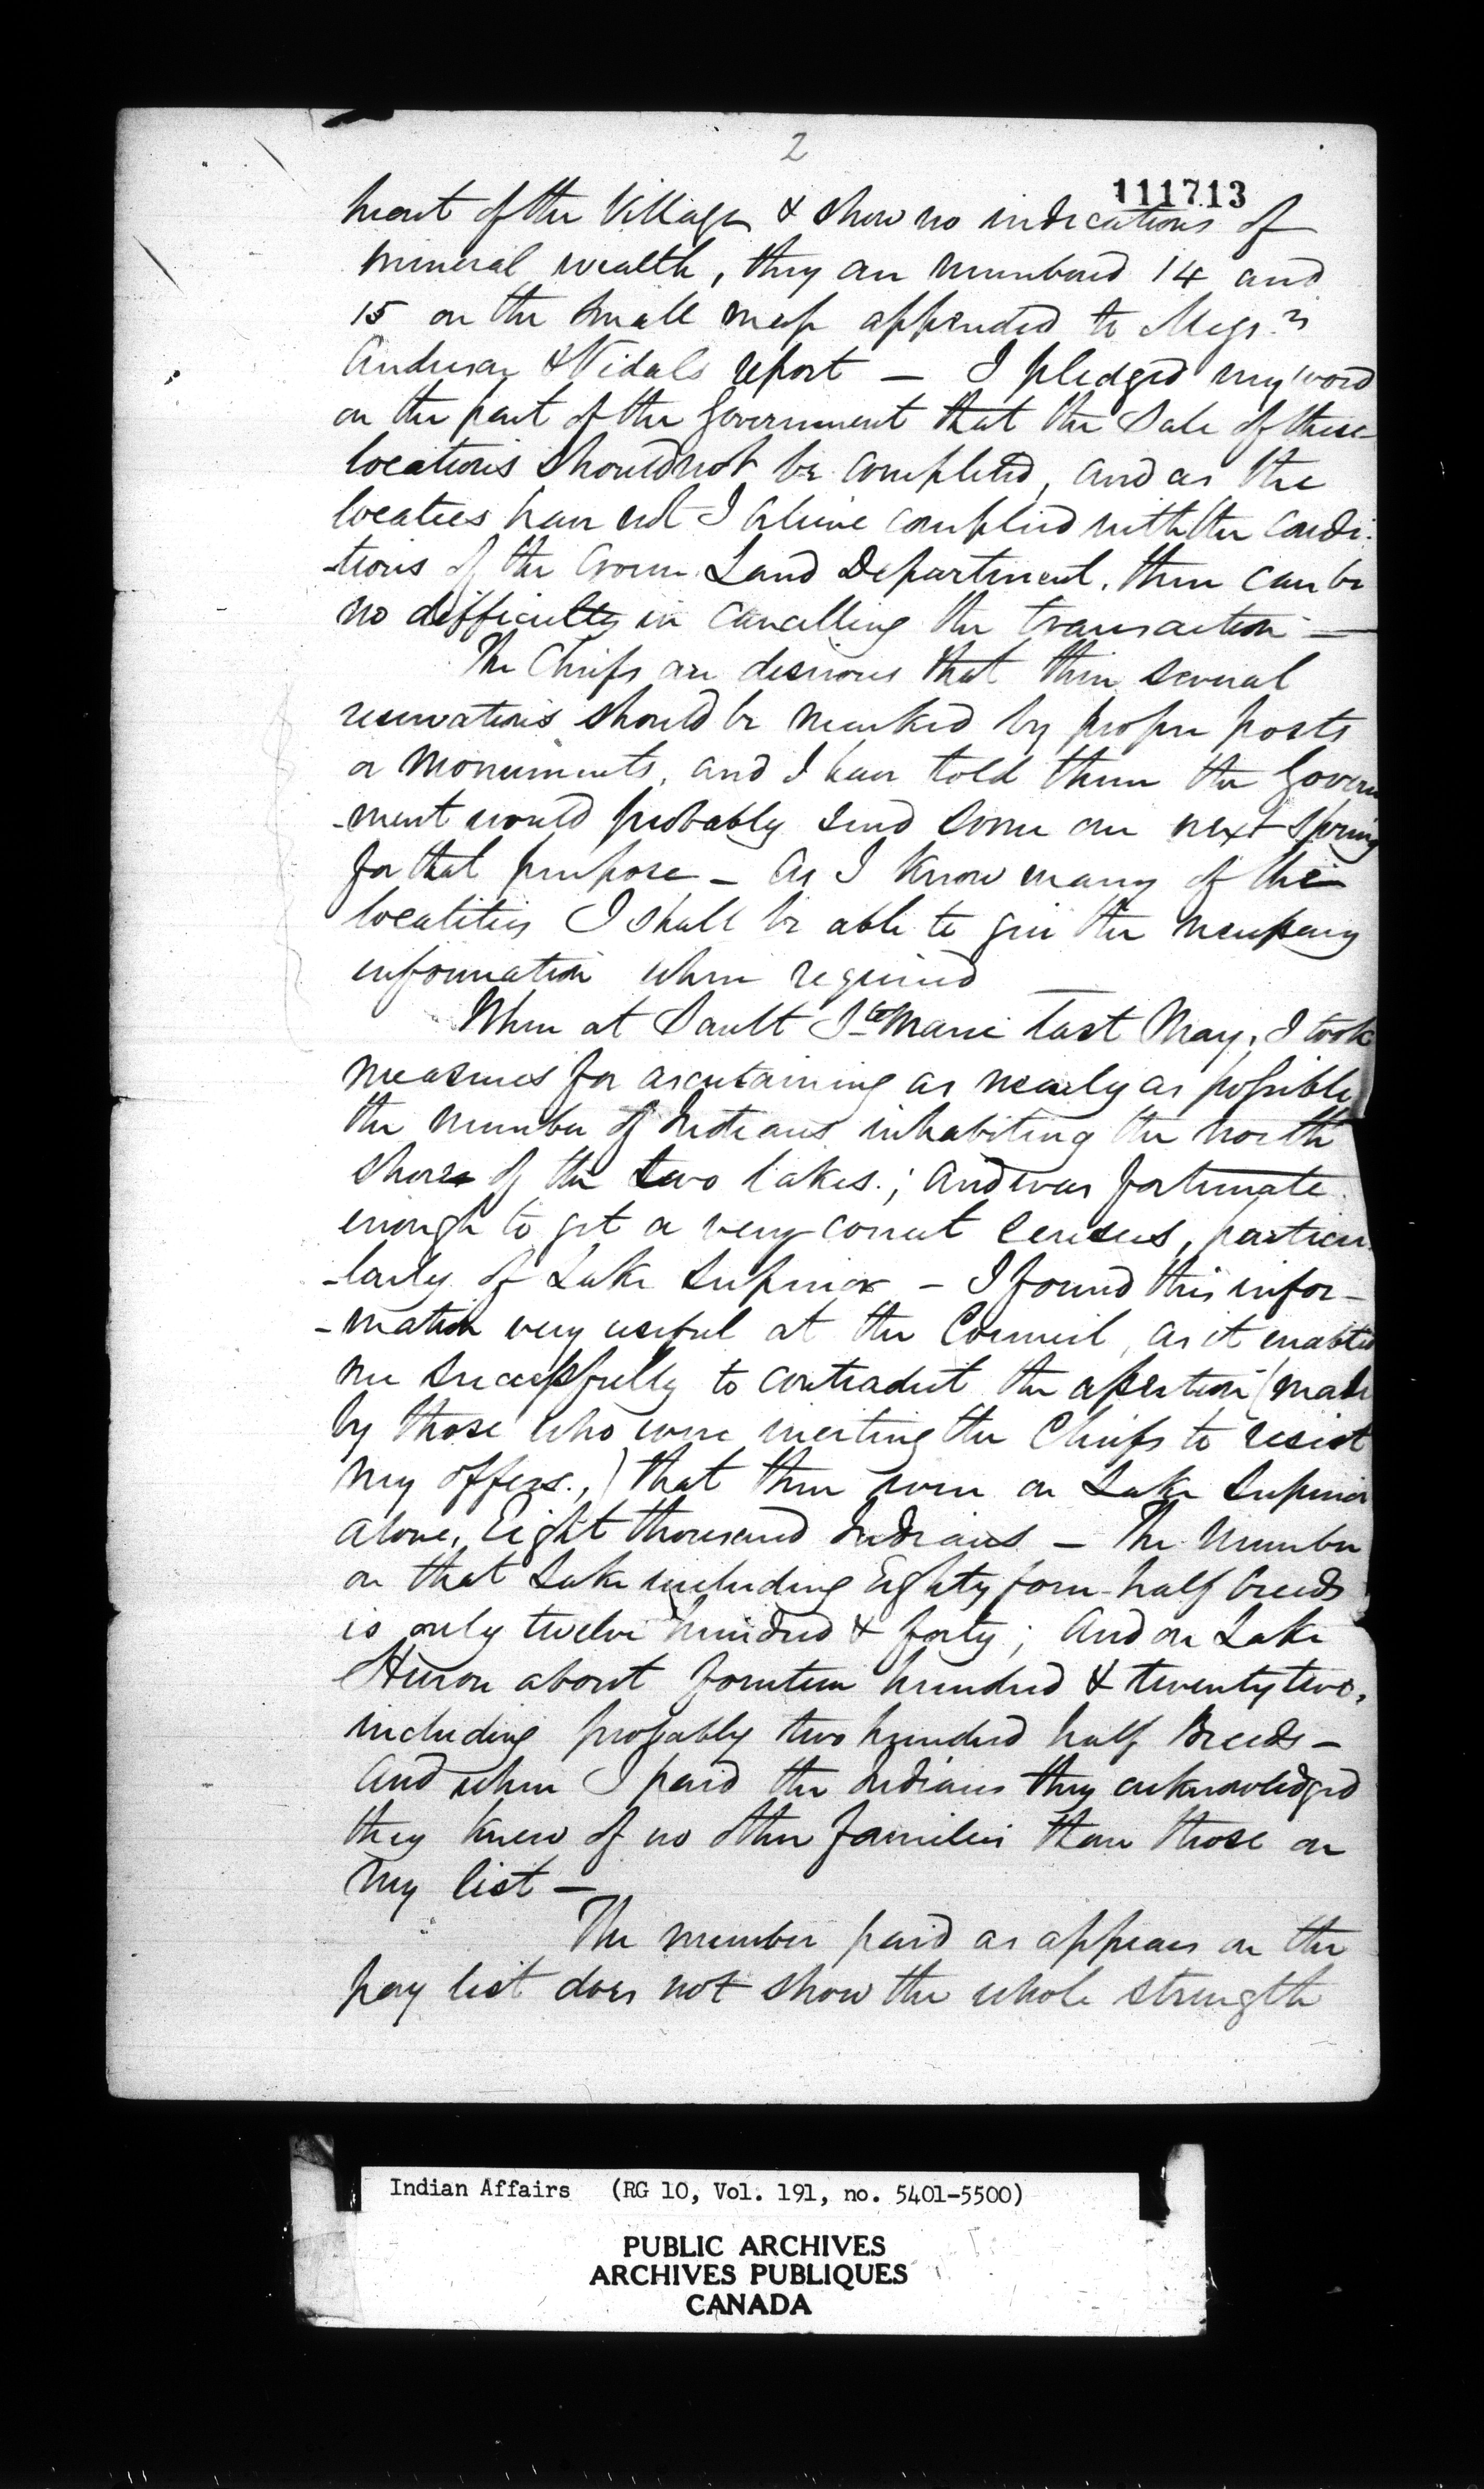 2
111713
heart of the Village & show no indications of
mineral wealth, they are numbered 14 and
15 on the small map appended to Messrs
Anderson & Vidals report — I pledged my word
on the part of the Government that the Sale of these
locations should not be completed, and as the
locatees have not I believe complied with the condi-
-tions of the Crown Land Department. there can be
no difficulty in cancelling the transaction —
The Chiefs are desirous that their several
reservations should be marked by proper posts
or monuments, and I have told them the Govern
-ment would probably send some one next Spring
for that purpose — As I know many of the
localities I shall be able to give the necessary
information when required —
When at Sault Ste Marie last May, I took
measures for ascertaining as nearly as possible
the number of Indians inhabiting the north
shore of the two lakes.; and was fortunate
enough to get a very correct census, particu
-larly of Lake Superior — I found this infor-
-mation very useful at the Council, as it enabled
me successfully to contradict the assertion (made
by those who were inciting the Chiefs to resist
my offers.,) that there were on Lake Superior
alone, Eight thousand Indians — The number
on that Lake including Eighty four half breeds
is only twelve hundred & forty; And on Lake
Huron about fourteen hundred & twenty two,
including probably two hundred half Breeds —
And when I paid the Indians they acknowledged
they knew of no other families than those on
my list —
The number paid as appears on the
pay list does not show the whole strength
Indian Affairs (RG 10, Vol. 191, no. 5401-5500)
PUBLIC ARCHIVES
ARCHIVES PUBLIQUES
CANADA